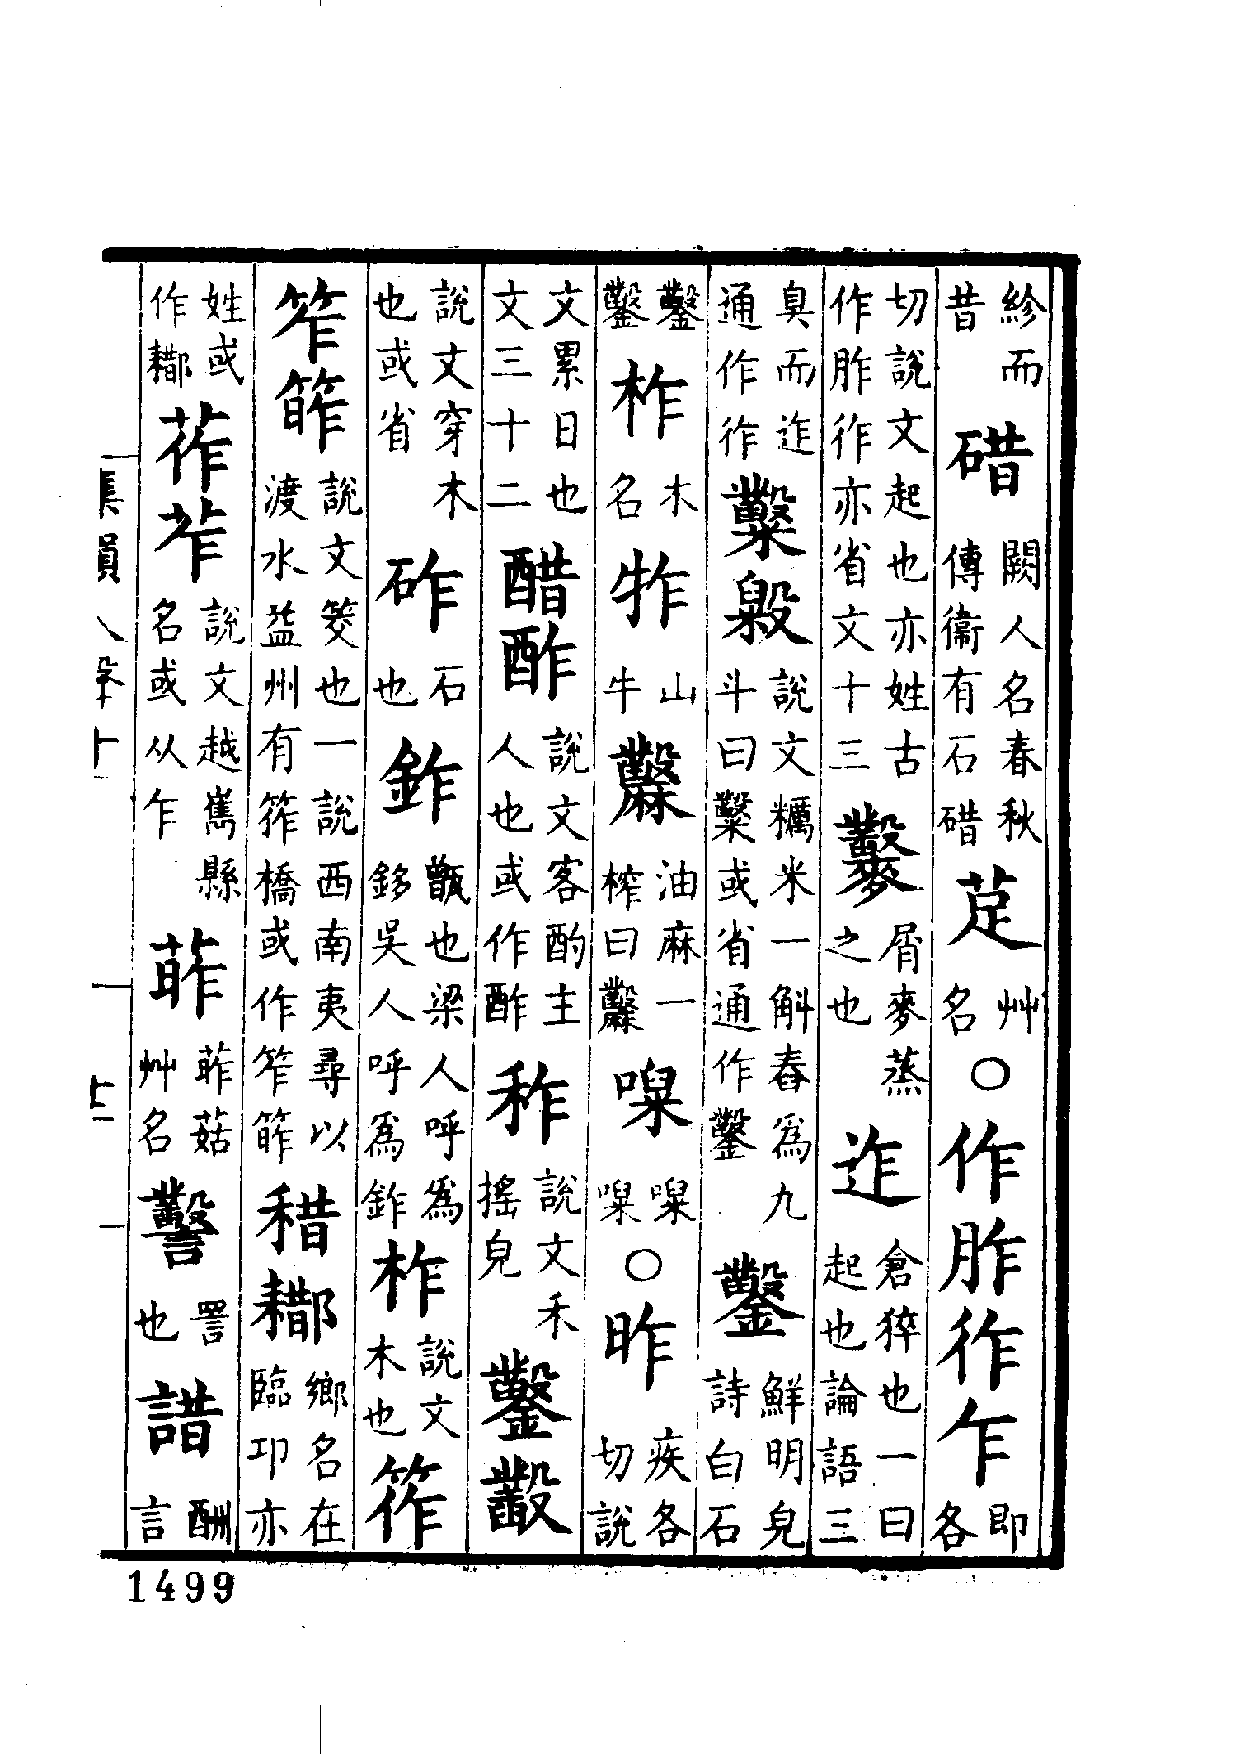 紾而昔碏闕人名春秋傳衞有石碏莡艸名○作胙㣅乍即各
切說文起也亦姓古作胙㣅亦省文十三屑麥蒸之也迮倉猝也一曰起也論語三
臭而迮通作作㣅糳說文糲米一斛舂爲九斗曰糳或省通作鑿鑿鮮明皃詩白石
鑿鑿柞木名㸲山牛油麻一榨曰○昨疾各切說
文累日也文三十二醋酢說文客酌主人也或作酢秨說文禾搖皃鑿
說文穿木也或省砟石也鈼甑也梁人呼爲鉹吳人呼爲鈼柞說文木也筰
笮說文筊也一說西南夷尋以渡水益州有筰橋或作笮稓鄉名在臨邛亦
姓或作莋苲說文越嶲縣名或从乍葄葄菇艸名詈也諎酬言
集韻入聲十
十二
1499